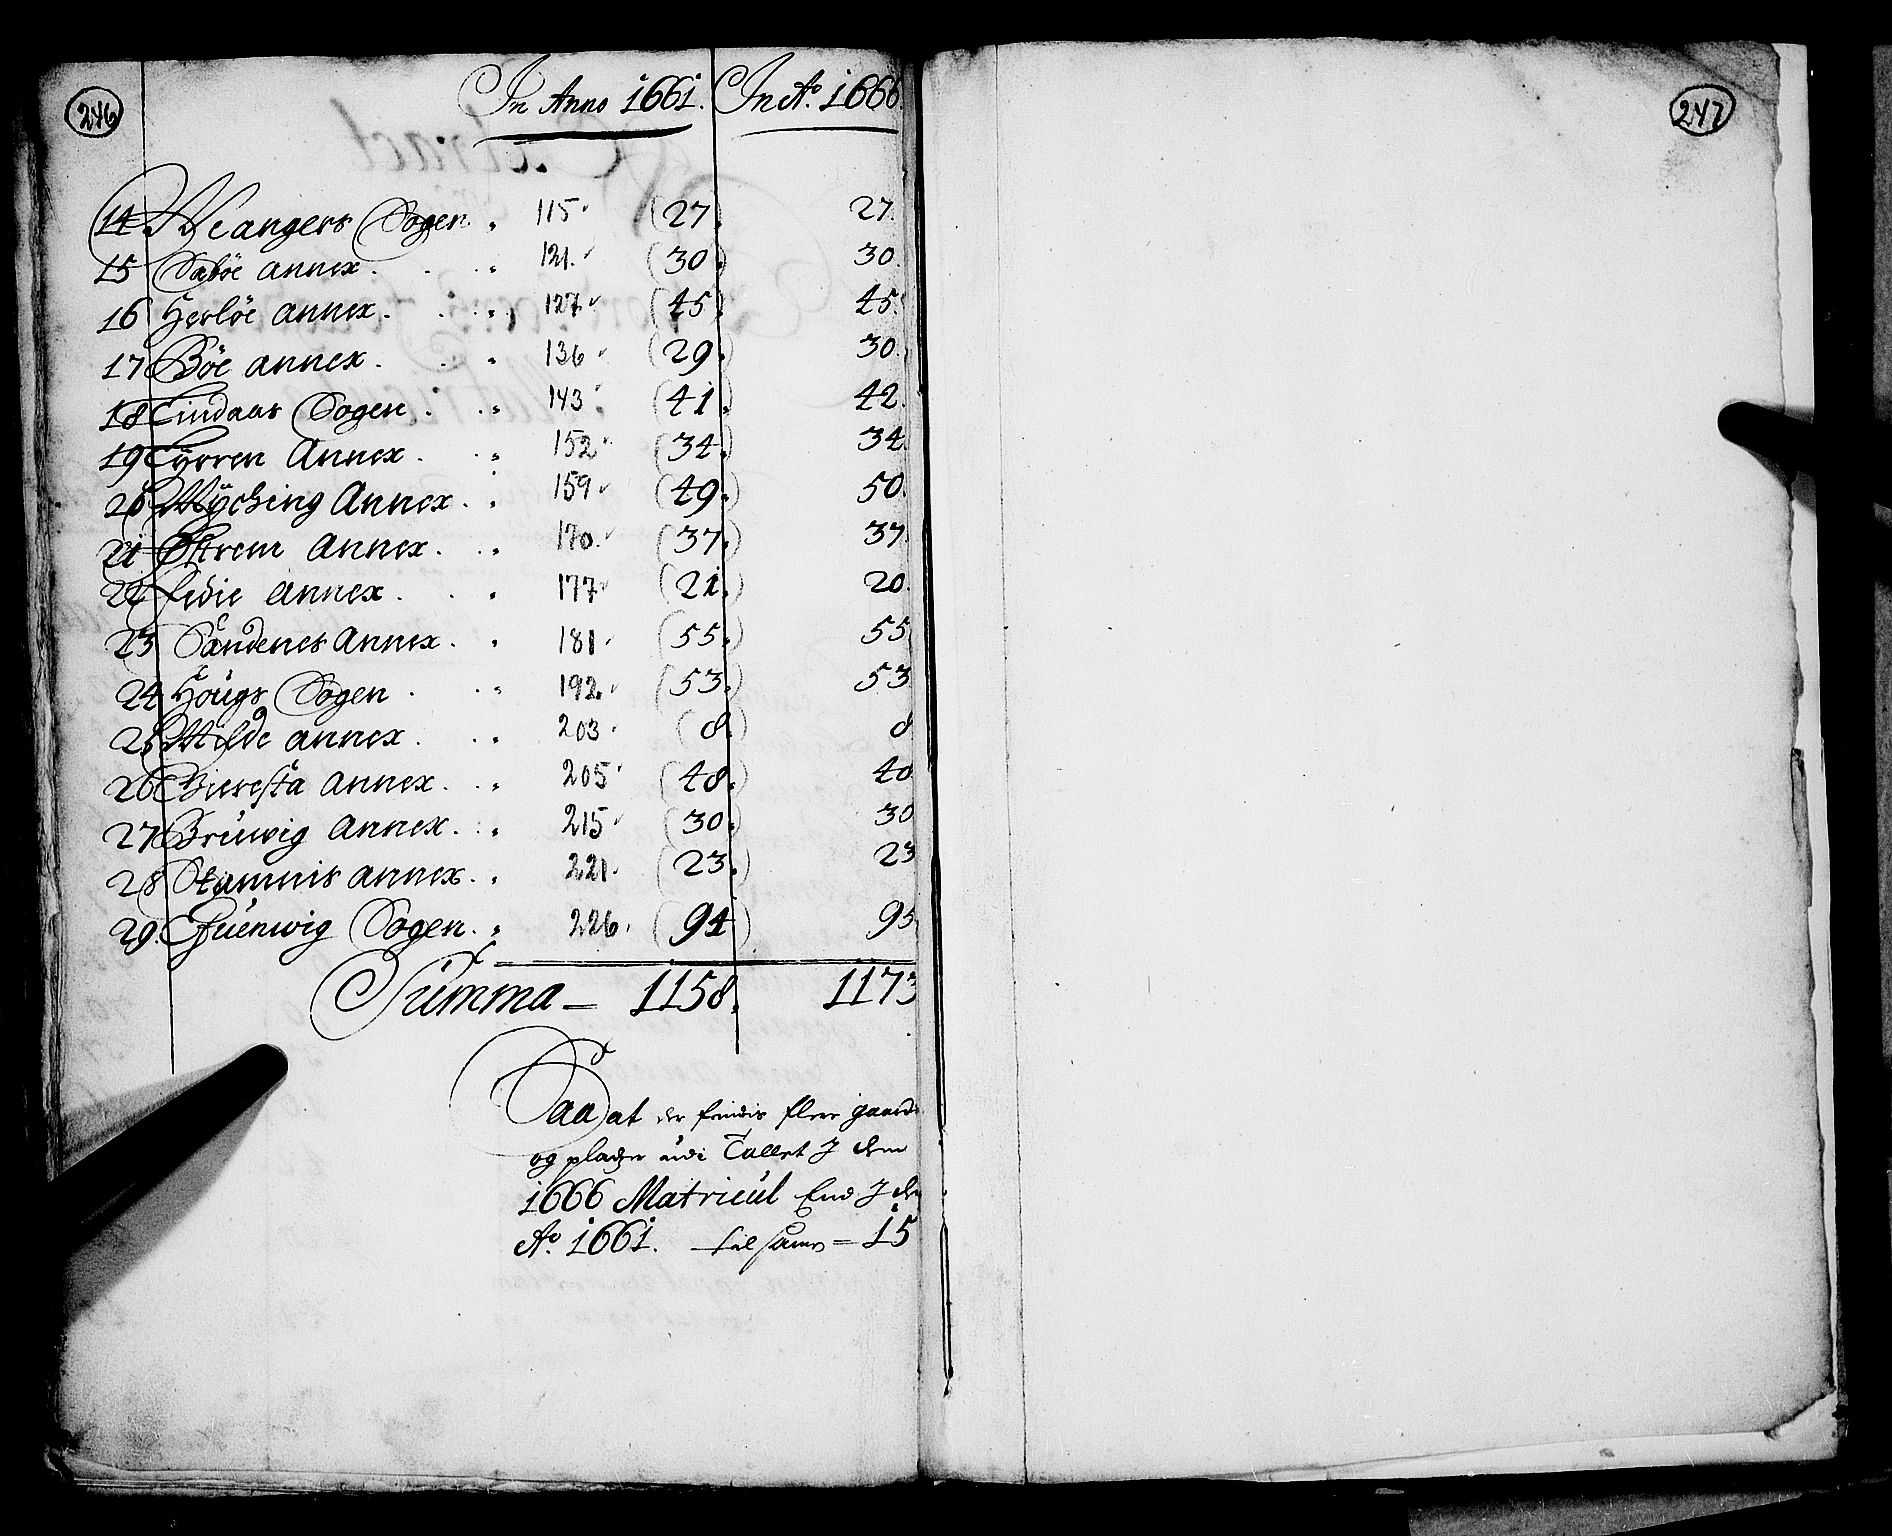 246
In Anno 1661. In Ao. 1666
14 Meangers Sogen 115 (27) 27.
15 Sæböe annex 121. (30) 30.
16 Herlöe annex 127 (45) 45.
17 Böe annex 136 (29) 30.
18 Lindaas Sogen 143 (41) 42.
19 Lÿgren Annex 152 (34) 34
20 Mÿcking Annex 159 (49) 50.
21 Østrem Annex 170. (37) 37.
22 Fedie annex 177 (21) 20.
23 Sandenes annex 181 (55) 55
24 Hougs Sogen 192 (53) 53
25 Milde annex 203 (8) 8
26 Gieresta annex 205 (48) 48
27 Bruwig Annex 215 (30) 30
28 Stamnis annex 221 (23) 23
29 Fuenwig Sogen 226. (94) 95
Summa 1158. 1173
Saa at der findis flere gaarde
og pladzer udi Tallet J dem
1666 Matricul End J den
Ao. 1661. tilsamen = 15
247